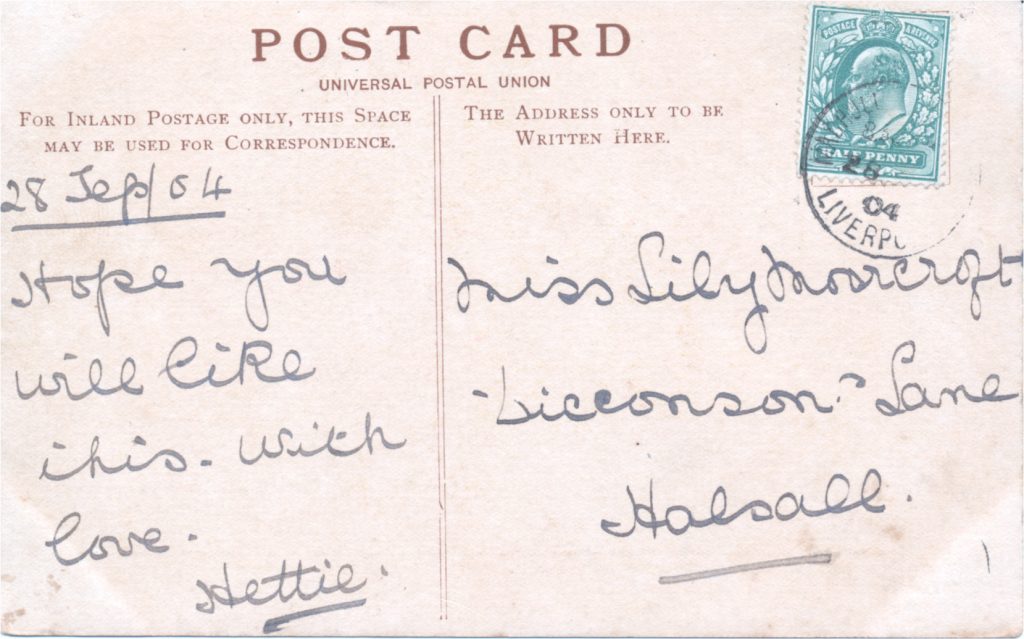 POST CARD
UNIVERSAL POSTAL UNION
FOR INLAND POSTAGE ONLY, THIS SPACE
MAY BE USED FOR CORRESPONDENCE.
THE ADDRESS ONLY TO BE
WRITTEN HERE.
POSTAGE & REVENUE
HALF PENNY
04
LIVERPO
28 Sep/04
Hope you
will like
this. With
love.
Hettie.
Miss Lily Moorcroft
"Licconson" Lane
Halsall.